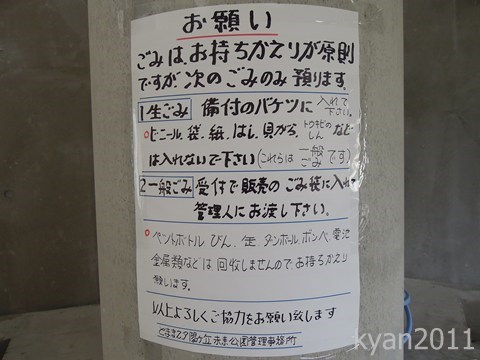 お願い
ごみは、お持ちかえりが原則
ですが、次のごみのみ預ります。
1 生ごみ 備付のバケツに入れて下さい。
○ビニール、袋、紙、はし、貝がら、トウキビのしんなど
は入れないで下さい(これらは一般ごみです)
2 一般ごみ 受付で販売のごみ袋に入れ
管理人にお渡し下さい。
○ペットボトル、びん、缶、ダンボール、ボンベ、電池
金属類などは、回収しませんので、お持ちかえり
願します。
以上よろしくご協力をお願い致します
とままえ夕陽ヶ丘未来公園管理事務所
kyan2011